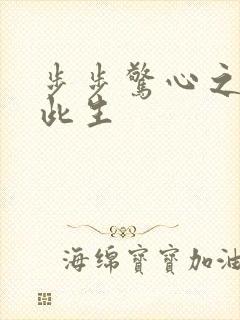 步步驚心之
此生
海绵寶寶加油